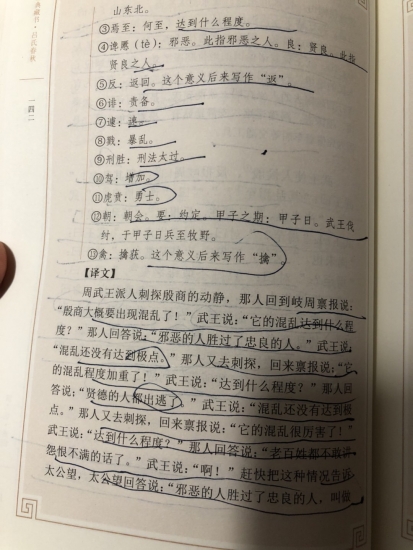 典藏书·吕氏春秋
一四二
山东北。
③焉至：何至，达到什么程度。
④谗慝（慝）：邪恶。此指邪恶之人。良：贤良。此指
贤良之人。
⑤反：返回。这个意义后来写作“返”。
⑥诽：责备。
⑦遽：速。
⑧戮：暴乱。
⑨刑胜：刑法太过。
⑩驾：增加。
⑪虎贲：勇士。
⑫朝：朝会。要：约定。甲子之期：甲子日。武王伐
纣，于甲子日兵至牧野。
⑬禽：擒获。这个意义后来写作“擒”。
【译文】
周武王派人刺探殷商的动静，那人回到岐周禀报说：
“殷商大概要出现混乱了！”武王说：“它的混乱达到什么程
度？”那人回答说：“邪恶的人胜过了忠良的人。”武王说：
“混乱还没有达到极点。”那人又去刺探，回来禀报说：“它
的混乱程度加重了！”武王说：“达到什么程度？”那人回
答说：“贤德的人都出逃了。”武王说：“混乱还没有达到极
点。”那人又去刺探，回来禀报说：“它的混乱很厉害了！”
武王说：“达到什么程度？”那人回答说：“老百姓都不敢讲
怨恨不满的话了。”武王说：“啊！”赶快把这种情况告诉
太公望，太公望回答说：“邪恶的人胜过了忠良的人，叫做